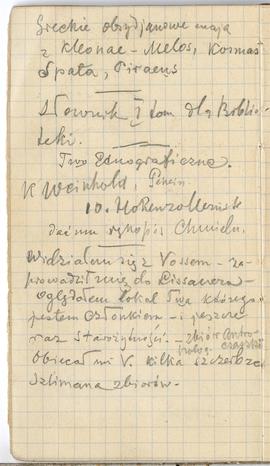 Greckie obsydjanowe mają
z Kleonae - Melos, Kormaś
Spata, Piraeus
Słownik I tom dla Biblio
teki.
Two Ednograficzne.
K Weinhold,
10. Hohenzollernstr
dać mu rękopis Chmielu.
Widziałem się z Vossem - za
prowadził mię do Lissauera -
Oglądałem lokal Twa którego
jestem członkiem - i jeszcze
raz starożytności. - zbiór antro
polog. czaszki
Obiecał mi V. kilka szczerb ze
Szlimana zbiorów.